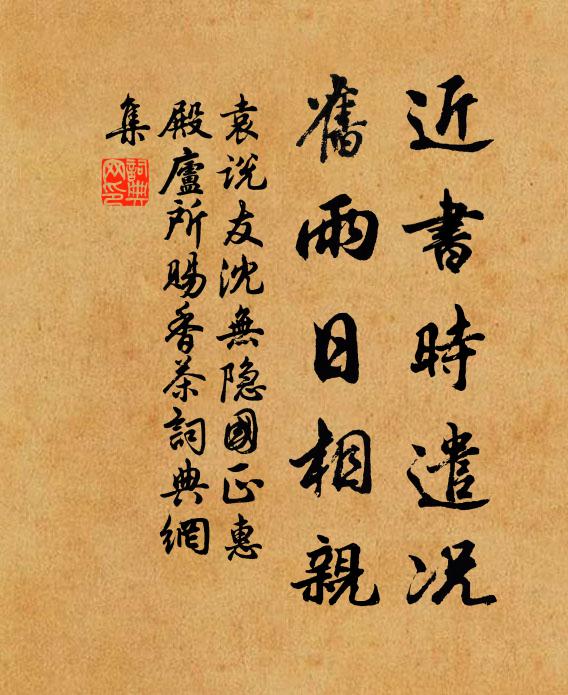 近書時遣况
舊雨日相親
袁说友沈無隐國正惠
殿廬所賜香茶詞典網
集
詞典網印